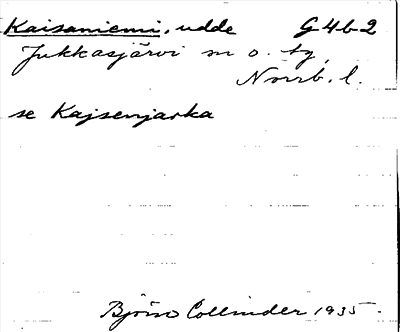 Kaisaniemi, udde G4b2
Jukkasjärvi sn o. tg,
Norrb. l.
se Kajsenjarka
Björn Collinder 1935.